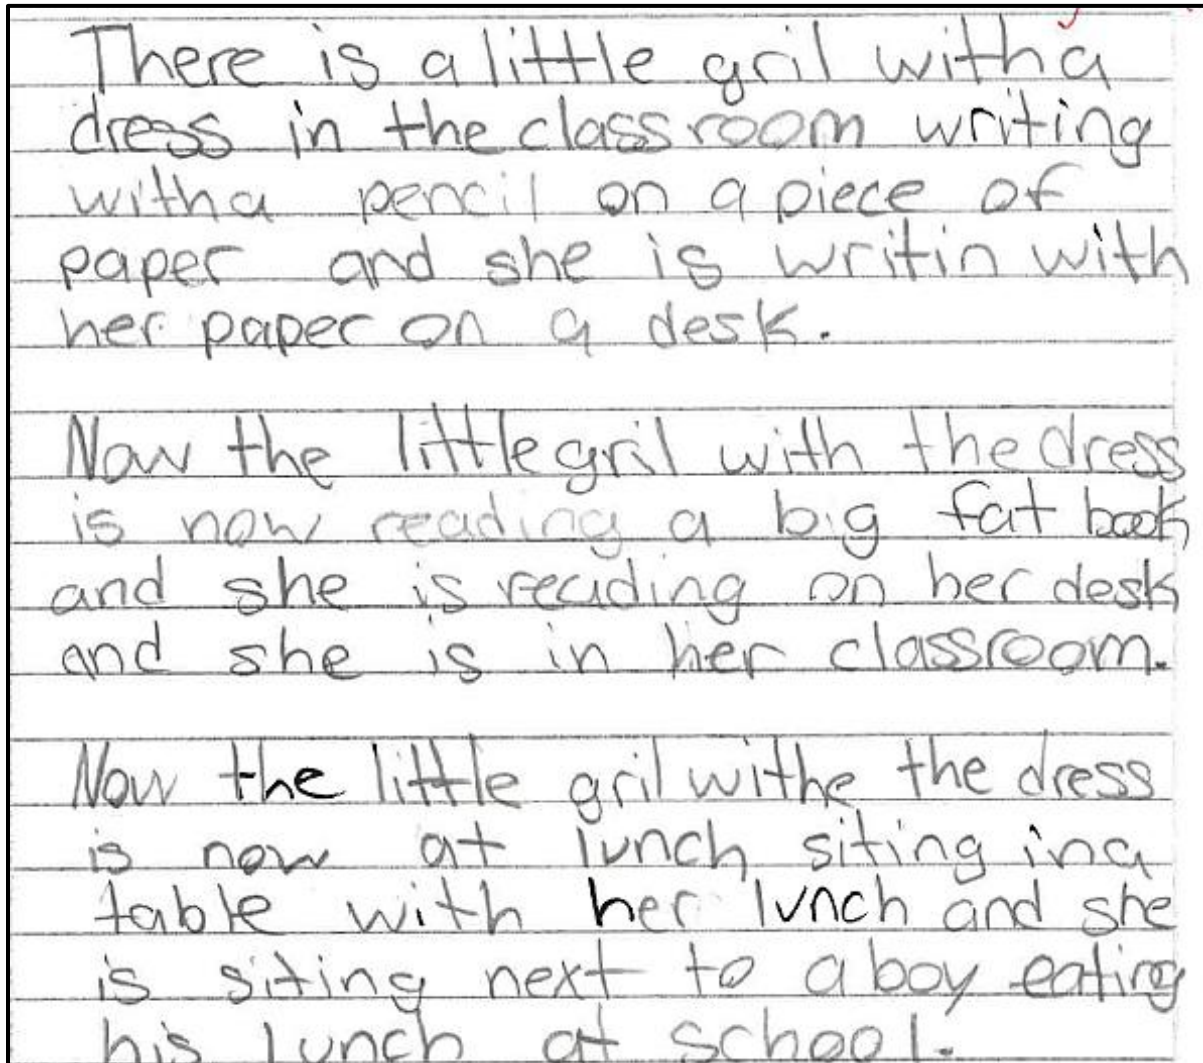 There is a little gril with a
dress in the classroom writing
with a pencil on a piece of
paper and she is writin with
her paper on a desk.
Now the little gril with the dress
is now reading a big fat book
and she is reading on her desk
and she is in her classroom.
Now the little gril withe the dress
is now at lunch siting in a
table with her lunch and she
is siting next to a boy eating
his lunch at school.